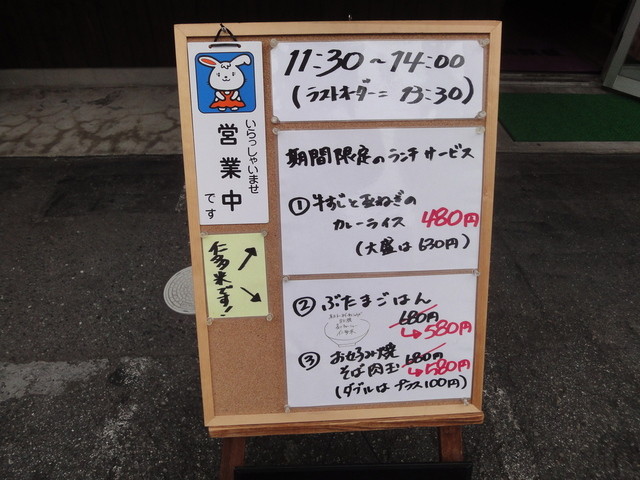 11:30～14:00
(ラストオーダー= 13:30)
いらっしゃいませ
営業中
です
期間限定のランチサービス
①牛すじと玉ねぎの
カレーライス 480円
(大盛は630円)
仁多米です!
②ぶたまごはん
680円
↳580円
③お好み焼 680円
そば肉玉 ↳580円
(ダブルはプラス100円)